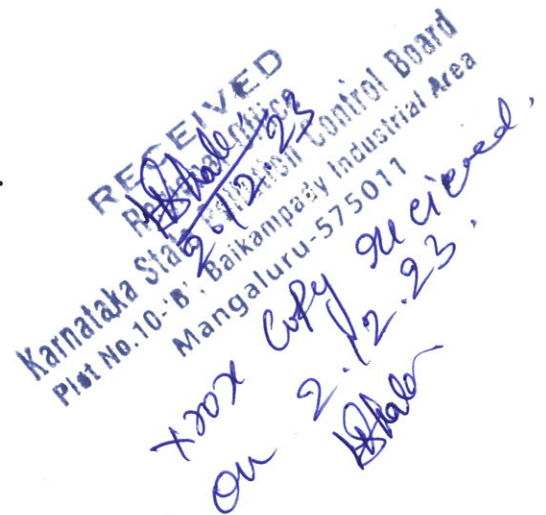 RECEIVED
Regional Office
Karnataka State Pollution Control Board
Plot No.10-'B', Baikampady Industrial Area
Mangaluru-575011
2.12.23
xrox Copy recieved.
on 2.12.23.